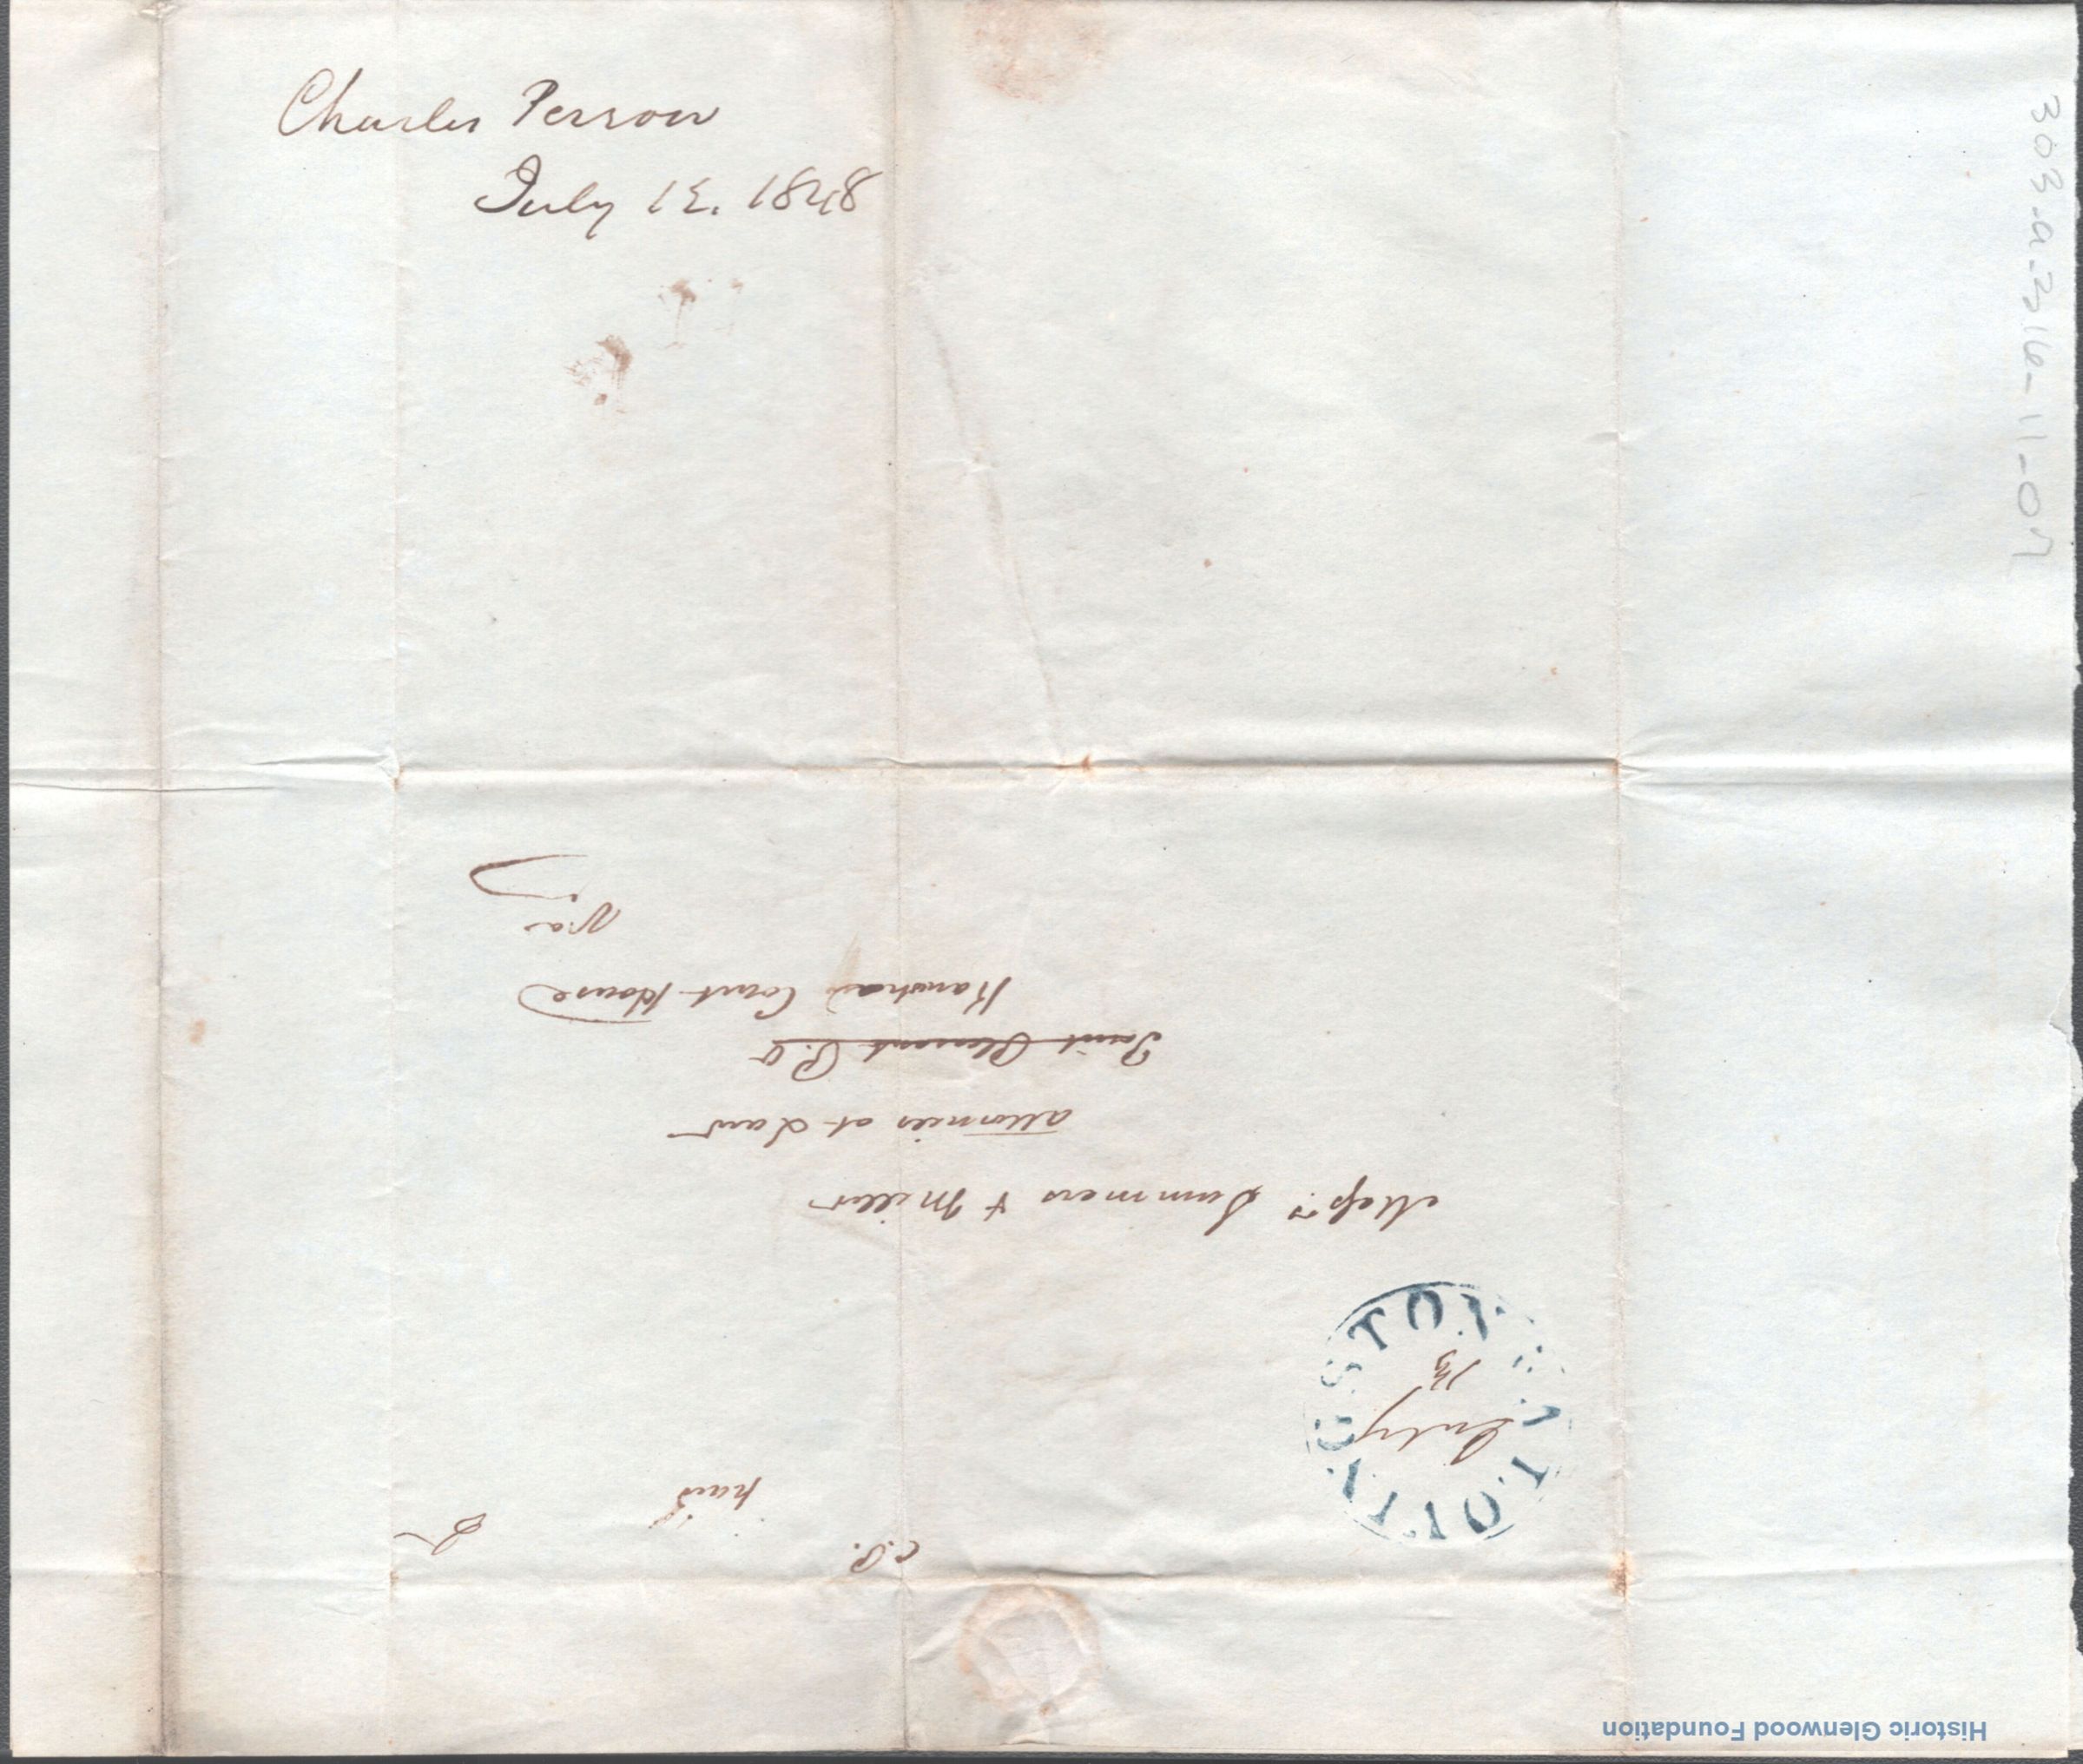 Charles Perrow
July 13. 1848
303-a-2316-11-07
Mess.rs Summers & Miller
attornies at Law
Point Pleasant P.O
Kanawha Court House
Va
LOVINGSTON
July
13
paid
C.P.
Historic Glenwood Foundation